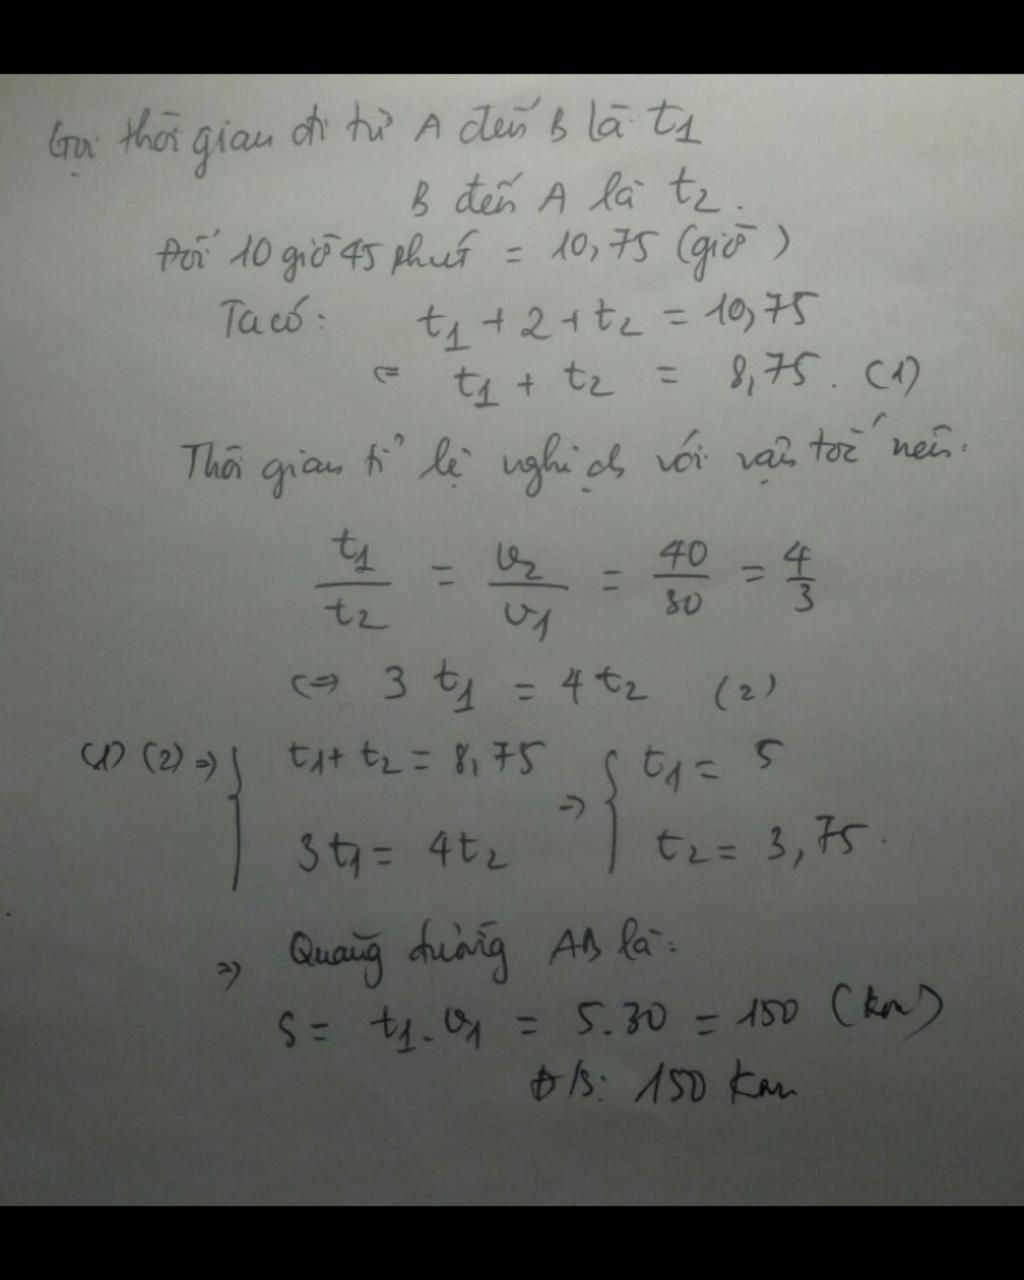 Gọi thời gian đi từ A đến B là t1
B đến A là t2.
Đổi 10 giờ 45 phút = 10,75 (giờ)
Ta có: t1 + 2 + t2 = 10,75
⇔ t1 + t2 = 8,75. (1)
Thời gian tỉ lệ nghịch với vận tốc nên:
t1/t2 = v2/v1 = 40/30 = 4/3
⇔ 3 t1 = 4 t2 (2)
(1) (2) ⇒ { t1 + t2 = 8,75 ⇒ { t1 = 5
3t1 = 4t2 t2 = 3,75.
⇒ Quãng đường AB là:
S = t1. v1 = 5.30 = 150 (km)
Đ/S: 150 km